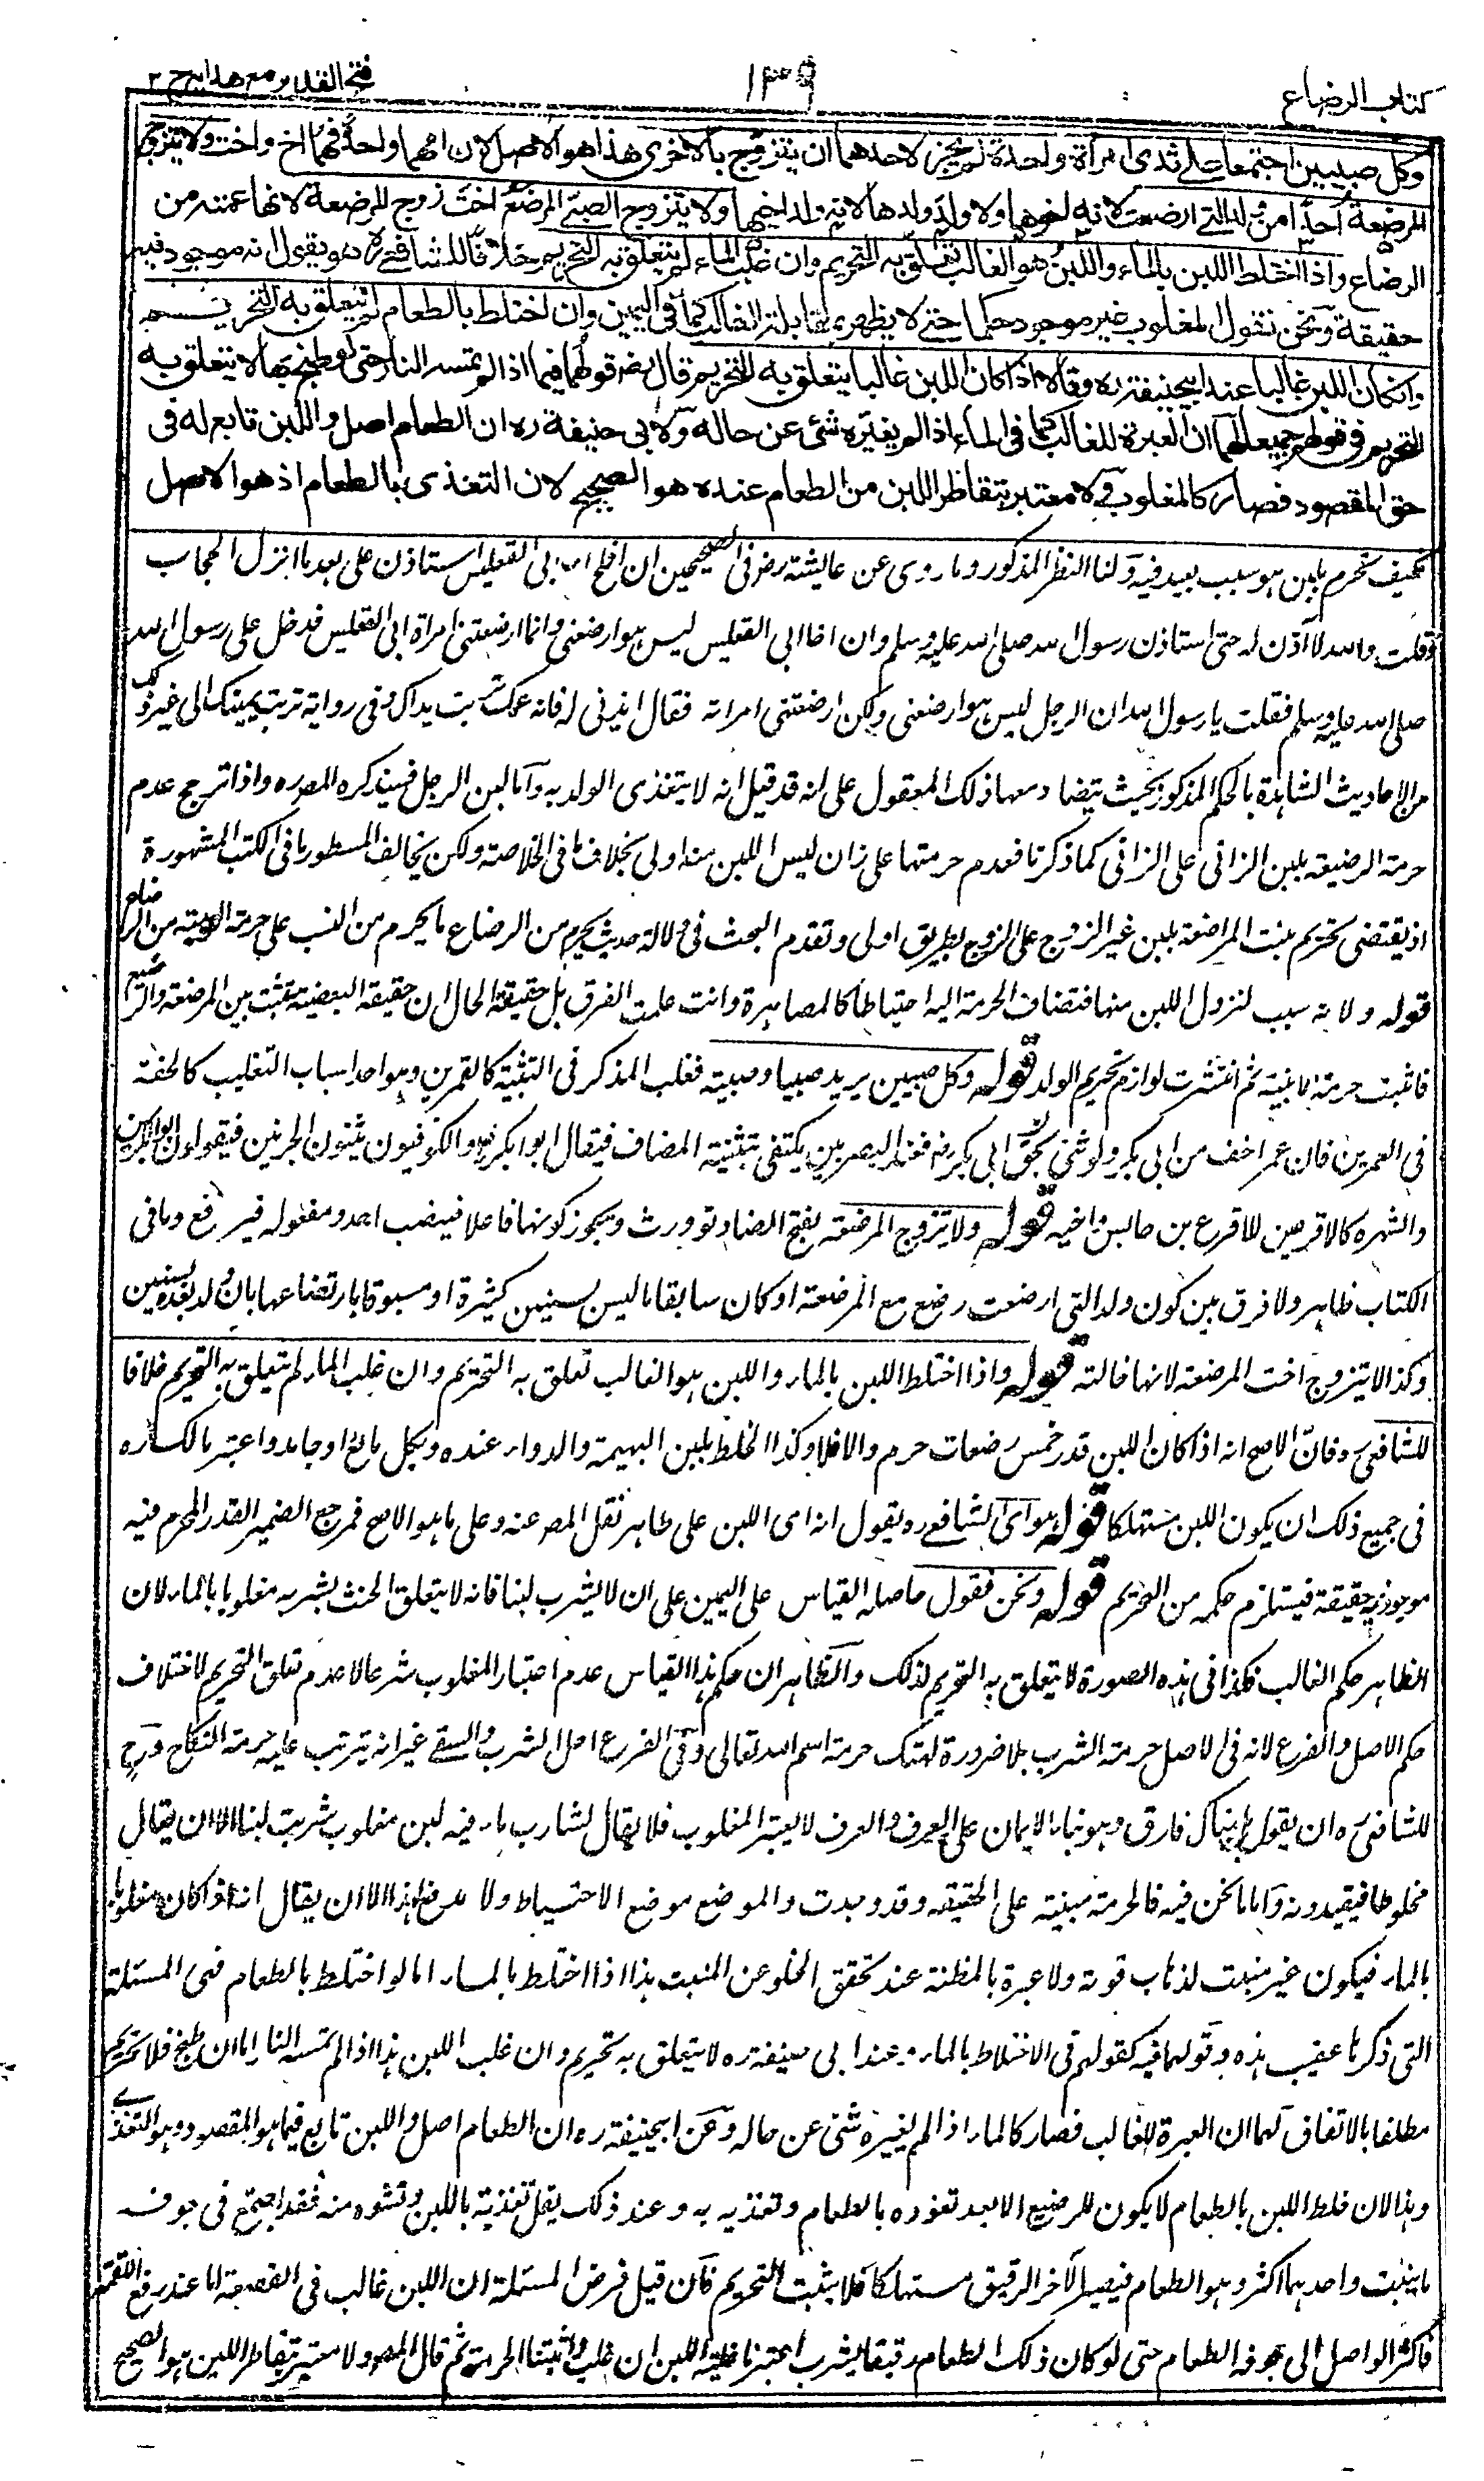 كتاب الرضاع
١٣٩
فتح القدير مع هدايه ج ٢
وكل صبيين اجتمعا على ثدى امرأة واحدة لم يجز لاحدهما ان يتزوج بالاخرى هذا هو الاصل لان امهما واحدة فهما اخ واخت ولا يتزوج
المرضعة احدا من ولد التى ارضعت لانه اخوها ولا ولد ولدها لانه ولد اخيها ولا يتزوج الصبى المرضع اخت زوج المرضعة لانها عمته من
الرضاع واذا اختلط اللبن بالماء واللبن هو الغالب تعلق به التحريم وان غلب الماء لم يتعلق به التحريم خلافا للشافعى ره هو يقول انه موجود فيه
حقيقة ونحن نقول المغلوب غير موجود حكما حتى لا يظهر بمقابلة الغالب كما فى اليمين وان اختلط بالطعام لم يتعلق به التحريم
وانكان اللبن غالبا عند ابيحنيفة ره وقالا اذا كان اللبن غالبا يتعلق به التحريم قال رضـ قولهما فيما اذا لم تمسه النار حتى لو طبخ بها لا يتعلق به
التحريم فى قولهم جميعا لهما ان العبرة للغالب كما فى الماء اذا لم يغيره شئ عن حاله ولابى حنيفة ره ان الطعام اصل واللبن تابع له فى
حق المقصود فصار كالمغلوب ولا معتبر بتقاطر اللبن من الطعام عنده هو الصحيح لان التغذى بالطعام اذ هو الاصل
فكيف تحرم بلبن هو سبب بعيد فيه ولنا النظر المذكور وما روى عن عايشة رضـ فى الصحيحين ان افلح اخا ابى القعيس استاذن على بعد ما انزل الحجاب
فقلت والله لا آذن له حتى استاذن رسول الله صلى الله عليه وسلم وان اخا ابى القعيس ليس هو ارضعنى وانما ارضعتنى امراة ابى القعيس فدخل على رسول الله
صلى الله عليه وسلم فقلت يا رسول الله ان الرجل ليس هو ارضعنى ولكن ارضعتنى امراته فقال ائذنى له فانه عمك تربت يداك وفى رواية تربت يمينك الى غير ذلك
من الاحاديث الشاهدة بالحكم المذكور بحيث يتضاد معها ذلك المعقول على انه قد قيل انه لا يتغذى الولد به واما لبن الرجل فسيذكره المصـ ره واذا ترجح عدم
حرمة الرضيعة بلبن الزانى على الزانى كما ذكرنا فعدم حرمتها على زان ليس اللبن منه اولى بخلاف ما فى الخلاصة ولكن يخالف المسطور ما فى الكتب المشهورة
اذ يقتضى تحريم بنت المراضعة بلبن غير الزوج على الزوج بطريق اولى وتقدم البحث فى دلالة حديث يحرم من الرضاع ما يحرم من النسب على حرمة الربيبة من الرضاع
قوله ولانه سبب لنزول اللبن منها فتضاف الحرمة اليه احتياطا كالمصاهرة وانت علمت الفرق بل حقيقة الحال ان حقيقة البعضية تثبت بين المرضعة والرضيع
فاثبت حرمة الابنية ثم انتشرت لوازم تحريم الولد قوله وكل صبيين يريد صبيا وصبية فغلب المذكر فى التثنية كالقمرين وهو احد اسباب التغليب كالخفة
فى العمرين فان عمر اخف من ابى بكر ولو ثنى بحق ابى بكر رضـ فعند البصريين يكتفى بتثنية المضاف فيقال ابوا بكر والكوفيون يثنون الجزئين فيقولون ابوا بكرين
والشهره كالاقرعين للاقرع بن حابس واخيه قوله ولا يتزوج المرضعة بفتح الضاد وتورث ويجوز كونها فاعلا فينصب احد ومفعوله فيرفع وما فى
الكتاب ظاهر ولا فرق بين كون ولد التى ارضعت رضع مع المرضعة او كان سابقا بالسن بسنين كثيرة او مسبوقا بارتضاعها بان ولد بعده بسنين
وكذا لا يتزوج اخت المرضعة لانها خالته قوله واذا اختلط اللبن بالماء واللبن هو الغالب تعلق به التحريم وان غلب الماء لم يتعلق به التحريم خلافا
للشافعى ره فان الاصح انه اذا كان اللبن قدر خمس رضعات حرم والا فلا وكذا الخلط بلبن البهيمة والدواء عنده وبكل مائع او جامد واعتبر مالك ره
فى جميع ذلك ان يكون اللبن مستهلكا قوله هو اى الشافعى ره يقول انه اى اللبن على ظاهر نقل المصـ عنه وعلى ما هو الاصح فمرجع الضمير القدر المحرم فيه
موجود فيه حقيقة فيستلزم حكمه من التحريم قوله ونحن نقول حاصله القياس على اليمين على ان لا يشرب لبنا فانه لا يتعلق الحنث بشربه مغلوبا بالماء لان
الظاهر حكم الغالب فكذا فى هذه الصورة لا يتعلق به التحريم لذلك والظاهر ان حكم هذا القياس عدم اعتبار المغلوب شرعا لا عدم تعلق التحريم لاختلاف
حكم الاصل والفرع لانه فى الاصل حرمة الشرب بلا ضرورة لهتك حرمة اسم الله تعالى وفى الفرع اصل الشرب والسقى غير انه يترتب عليه حرمة النكاح وترجح
للشافعى ره ان يقول هناك فارق وهو بناء الايمان على العرف والعرف لا يعتبر المغلوب فلا يقال لشارب ماء فيه لبن مغلوب شربت لبنا الا ان يقال
مخلوطا فيقيدونه واما ما نحن فيه فالحرمة مبنية على الحقيقه وقد وجدت والموضع موضع الاحتياط ولا مدفع لهذا الا ان يقال انه اذا كان مغلوبا
بالماء فيكون غير منبت لذهاب قوته ولا عبرة بالمظنة عند تحقق الخلو عن المنبت هذا اذا اختلط بالماء اما لو اختلط بالطعام فهى المسئلة
التى ذكرها عقيب هذه وقولهما فيه كقولهم فى الاختلاط بالماء وعند ابى حنيفة ره لا يتعلق به تحريم وان غلب اللبن هذا اذا لم تمسه النار اما ان طبخ فلا تحريم
مطلقا بالاتفاق لهما ان العبرة للغالب فصار كالماء اذا لم يغيره شئ عن حاله وعن ابيحنيفة ره ان الطعام اصل واللبن تابع فيما هو المقصود وهو التغذى
وهذا لان خلط اللبن بالطعام لا يكون للرضيع الا بعد تعوده بالطعام وتغذيه به وعند ذلك يقل تغذيه باللبن ونشوه منه فقد اجتمع فى جوفه
ما ينبت واحدهما اكثر وهو الطعام فيصير الآخر الرقيق مستهلكا فلا يثبت التحريم فان قيل فرض المسئلة ان اللبن غالب فى القصعة اما عند رفع اللقمة
فاكثر الواصل الى جوفه الطعام حتى لو كان ذلك الطعام رقيقا يشرب اعتبرنا غلبة اللبن ان غلب واثبتنا الحرمة ثم قال المصـ ولا معتبر بتقاطر اللبن هو الصحيح